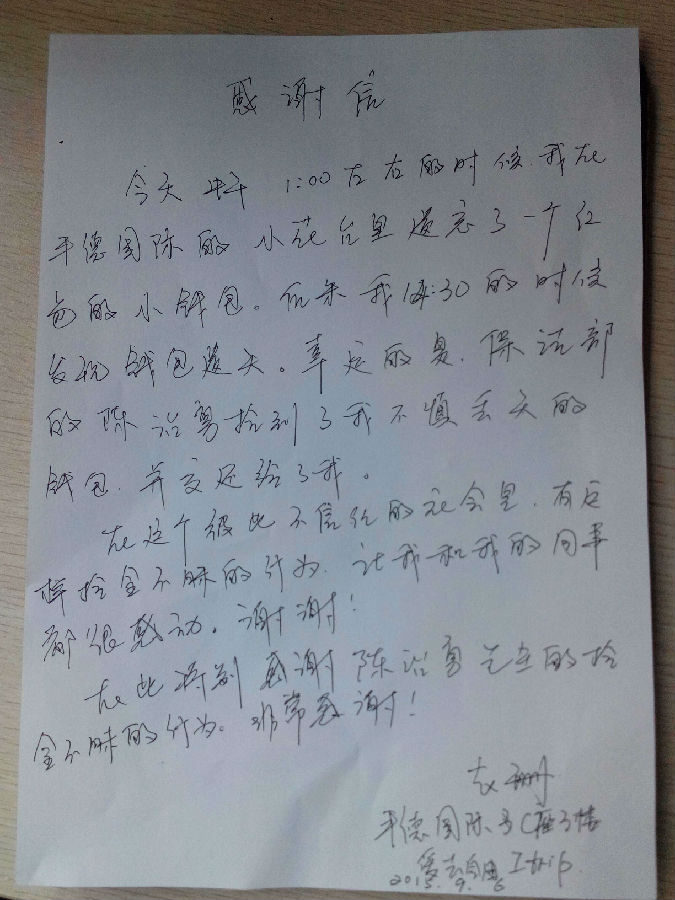 感谢信
今天中午 1:00左右的时候,我在
平德国际的小花台里遗忘了一个红
色的小钱包。后来我14:30的时候
发现钱包遗失。幸运的是,保洁部
的陈治勇捡到了我不慎丢失的
钱包,并交还给了我。
在这个彼此不信任的社会里,有这
样拾金不昧的行为,让我和我的同事
都很感动。谢谢!
在此特别感谢陈治勇先生的拾
金不昧的行为。非常感谢!
赵珊
平德国际 C座3楼
自由 Itrip
2015.9.6